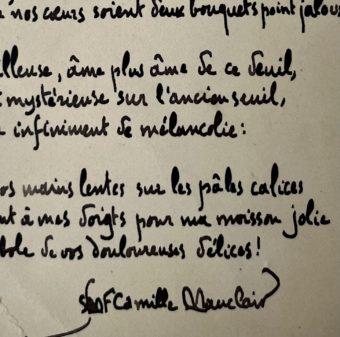 nos cœurs soient deux bouquets point jaloux
lleuse, âme plus âme de ce deuil,
mystérieuse sur l'ancien seuil,
infiniment de mélancolie:
os mains lentes sur les pâles calices
nt à mes doigts pour ma moisson jolie
bole de vos douloureuses délices!
Camille Mauclair